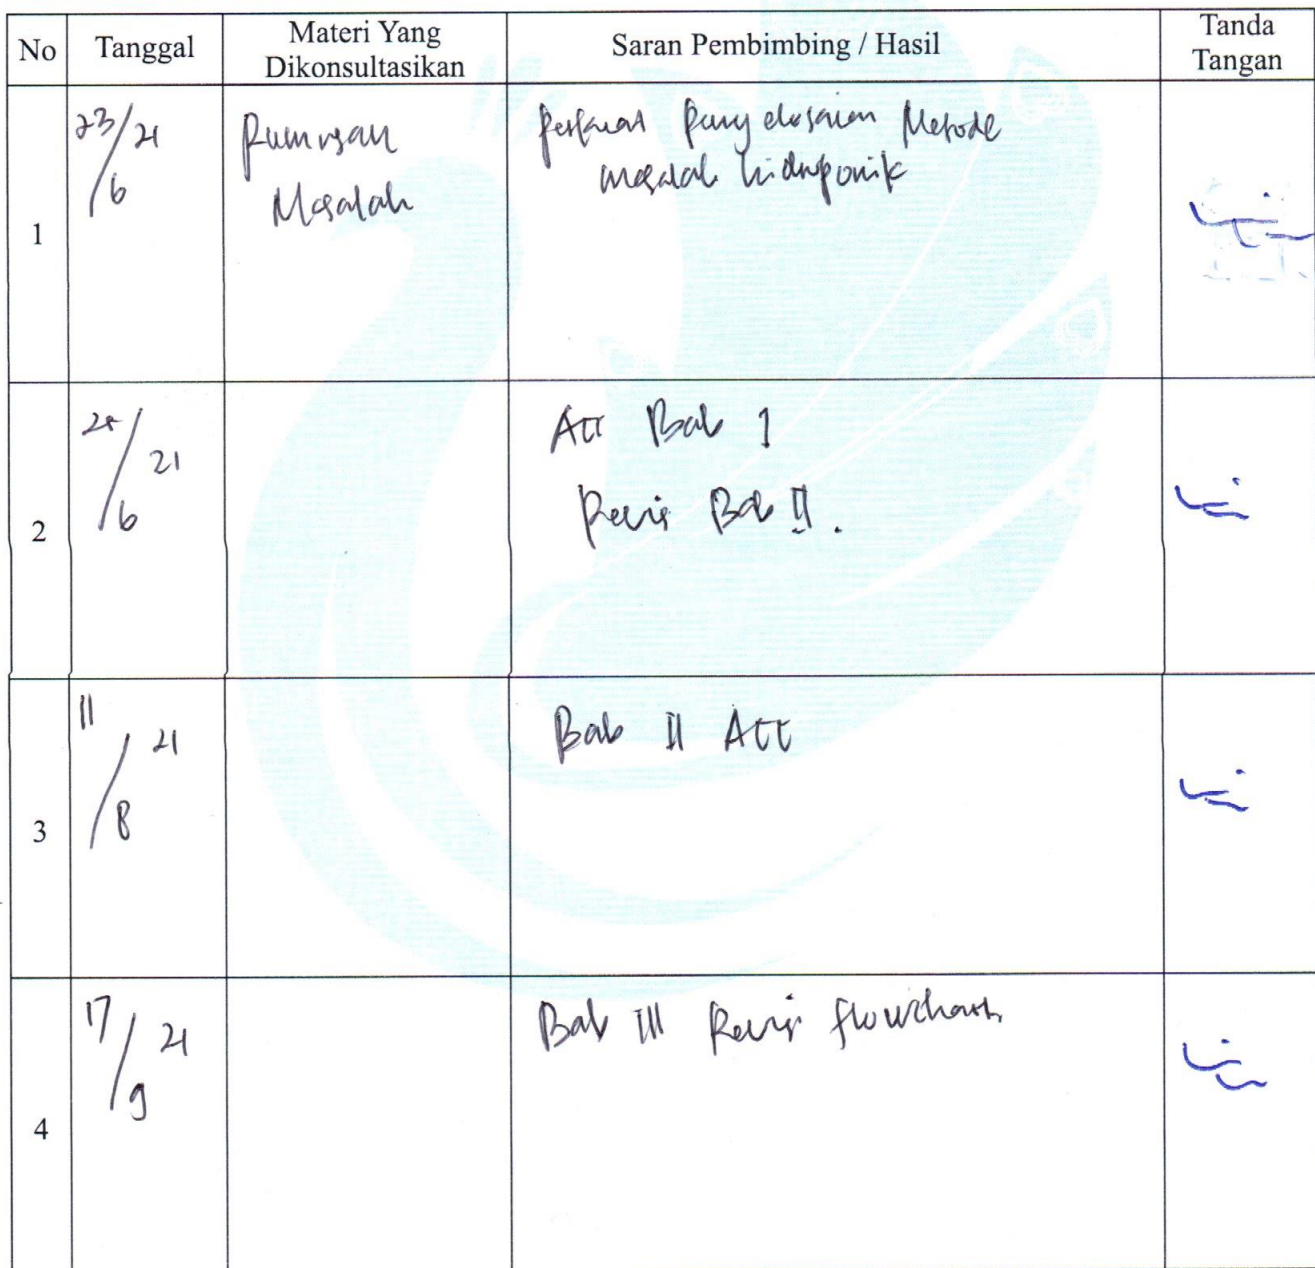 No Tanggal Materi Yang Dikonsultasikan Saran Pembimbing / Hasil Tanda Tangan
1 23/6 21 Rumusan Masalah
Metode
masalah hidroponik
2 /6 21 Acc Bab 1
Revisi Bab II.
3 11/8 21 Bab II Acc
4 17/9 21 Bab III Revisi flowchart